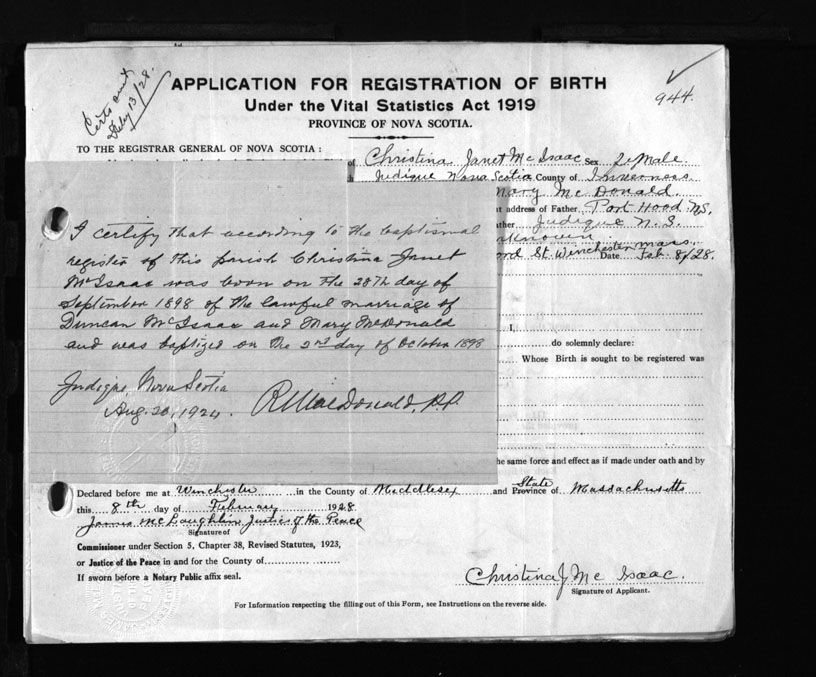 Certs sent
Feby 13/28.
944.
APPLICATION FOR REGISTRATION OF BIRTH
Under the Vital Statistics Act 1919
PROVINCE OF NOVA SCOTIA.
TO THE REGISTRAR GENERAL OF NOVA SCOTIA :
of Christina Janet Mc Isaac Sex Female
Judique Nova Scotia County of Inverness
Mary Mc Donald
address of Father Port Hood N.S.
Judique N.S.
unknown
St. Winchester Mass. Date Feb. 8/28.
I certify that according to the baptismal
register of this parish Christina Janet
McIsaac was born on the 28th day of
September 1898 of the lawful marriage of
Duncan McIsaac and Mary McDonald
and was baptized on the 2nd day of October 1898
Judique, Nova Scotia
Aug. 20, 1924. MacDonald, P.P.
I,
do solemnly declare:
Whose Birth is sought to be registered was
the same force and effect as if made under oath and by
Declared before me at Winchester in the County of Middlesex and State Province of Massachusetts
this 8th day of February 1928
James McLaughlin Justice of the Peace
Signature of
Commissioner under Section 5, Chapter 38, Revised Statutes, 1923,
or Justice of the Peace in and for the County of
If sworn before a Notary Public affix seal.
Christina J Mc Isaac.
Signature of Applicant.
For Information respecting the filling out of this Form, see Instructions on the reverse side.